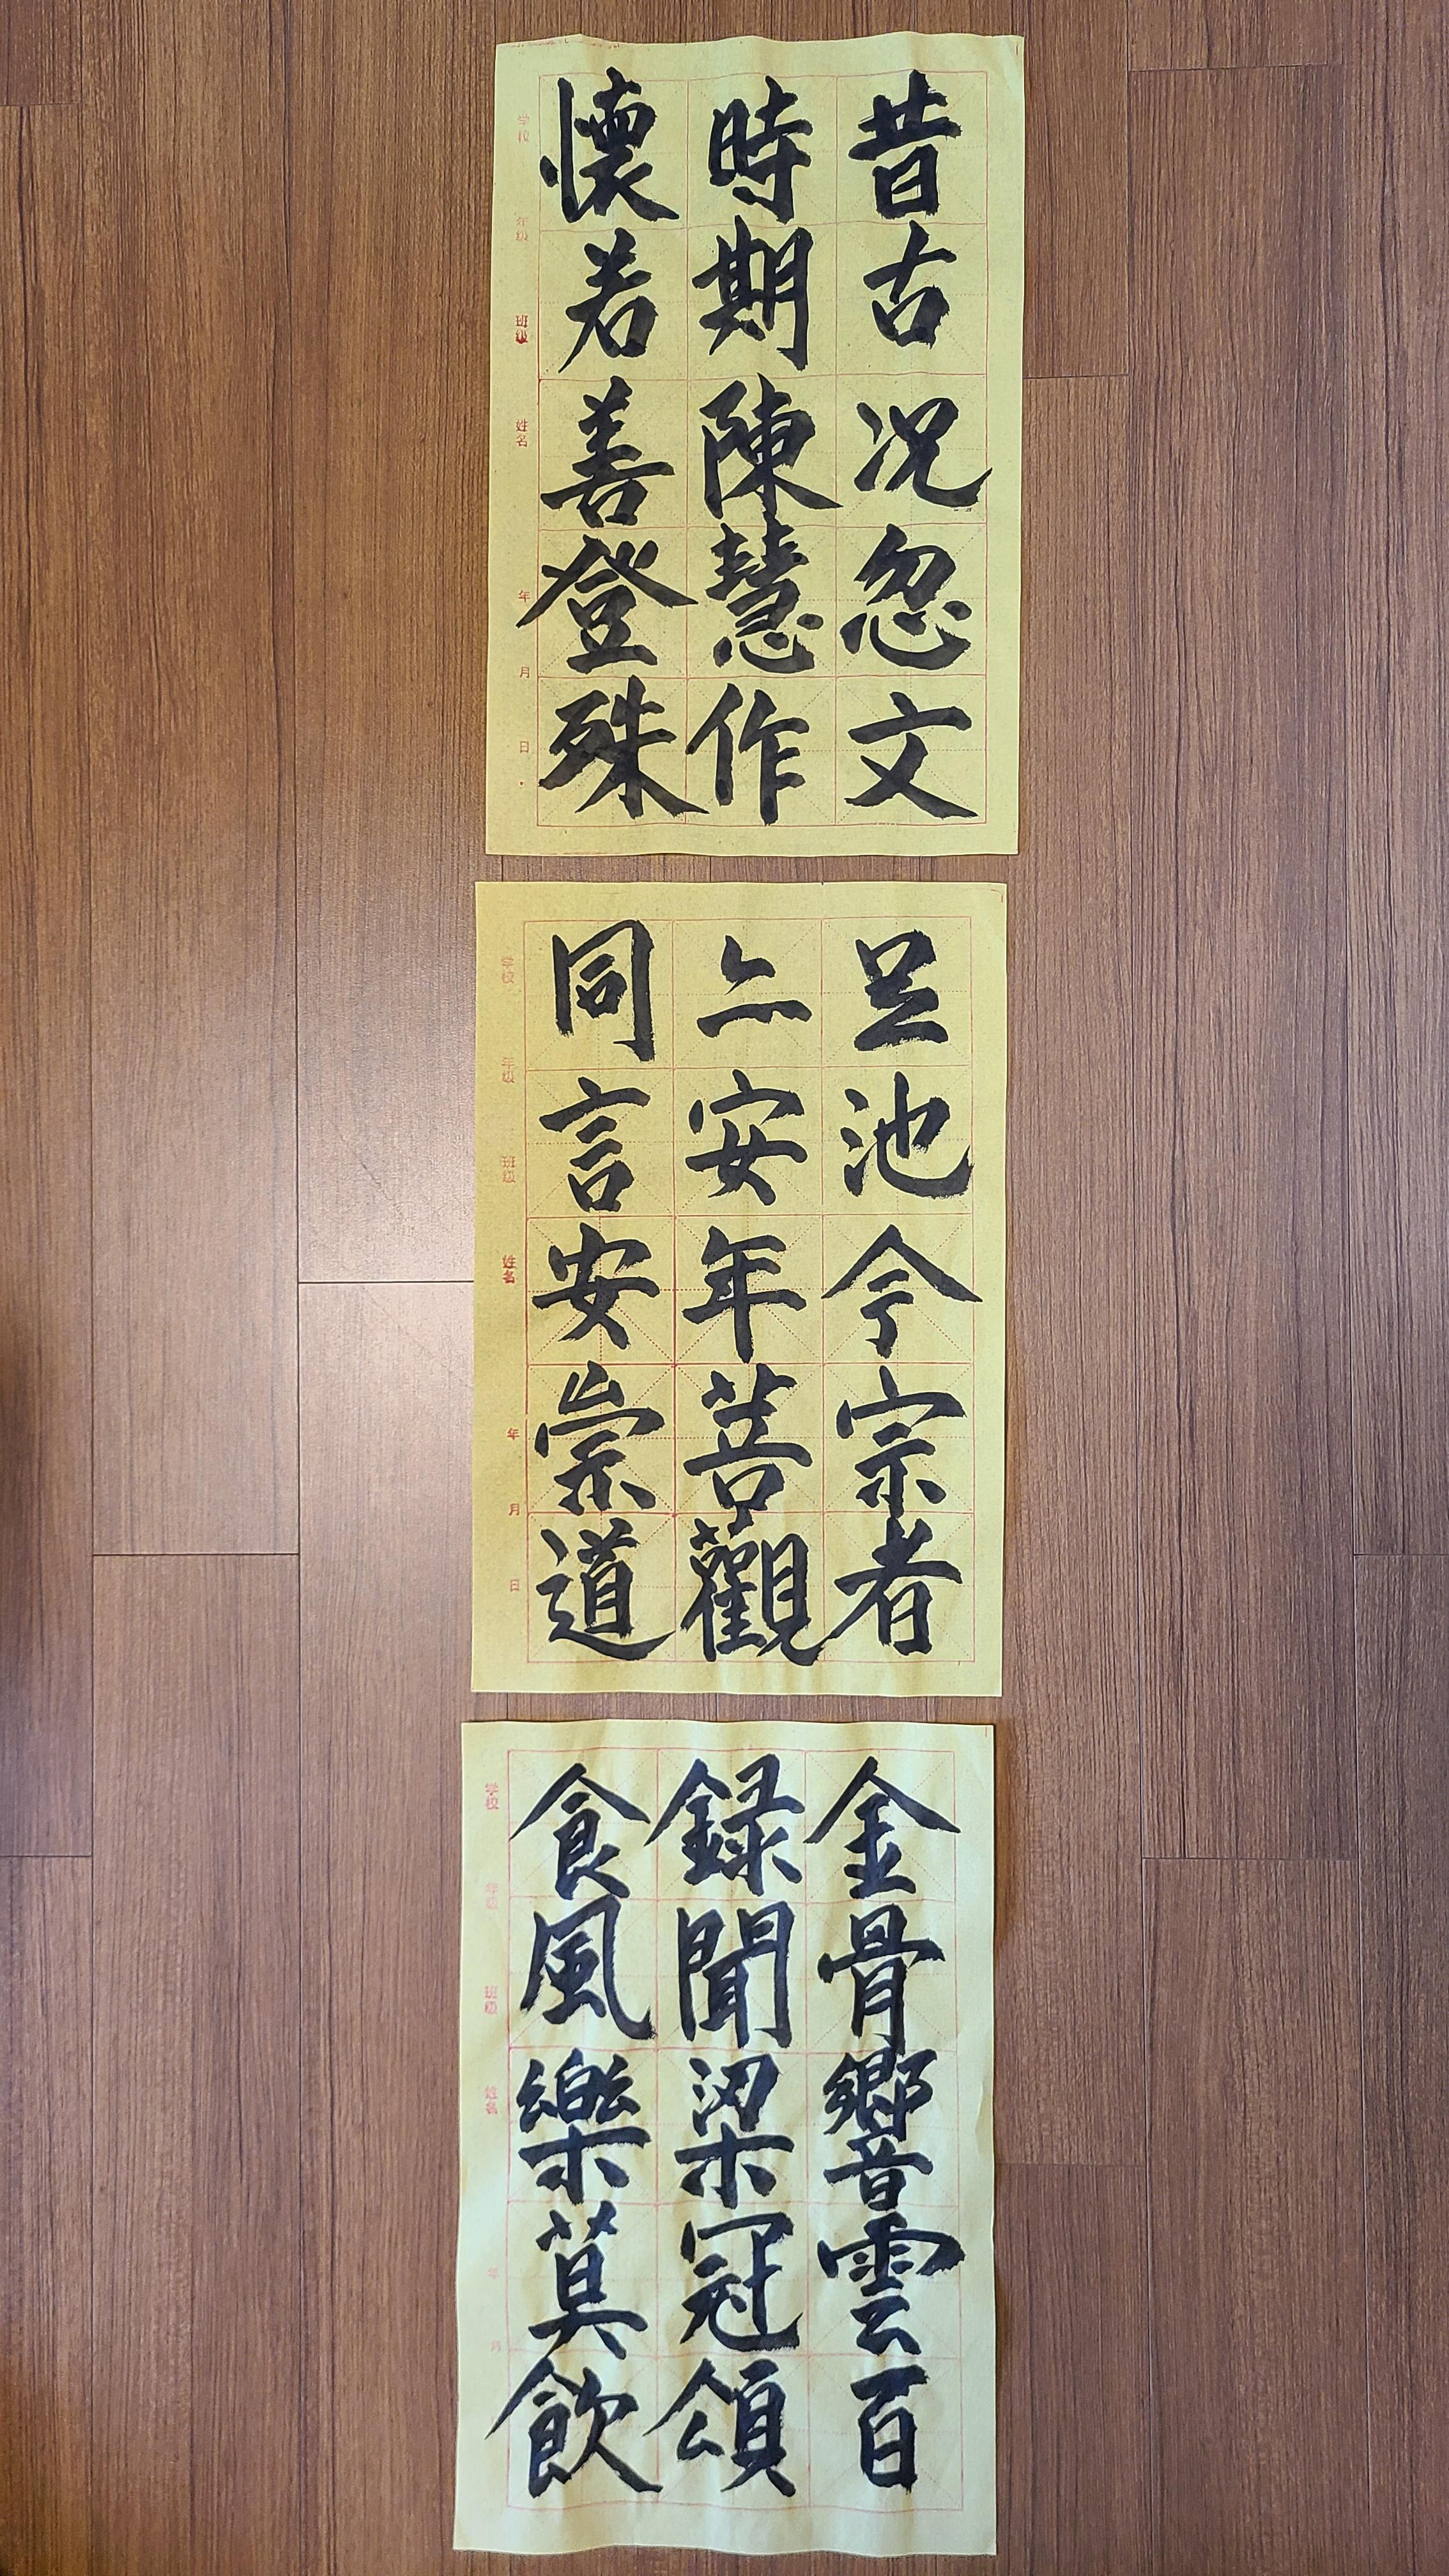 昔古况忽文
時期陳慧作
懷若善登殊
学校 年级 班级 姓名 年 月 日
池今宗者
安年菩觀
同言安崇道
学校 年级 班级 姓名 年 月 日
金骨響雲百
録聞梁冠頌
食風樂莫飲
学校 年级 班级 姓名 年 月